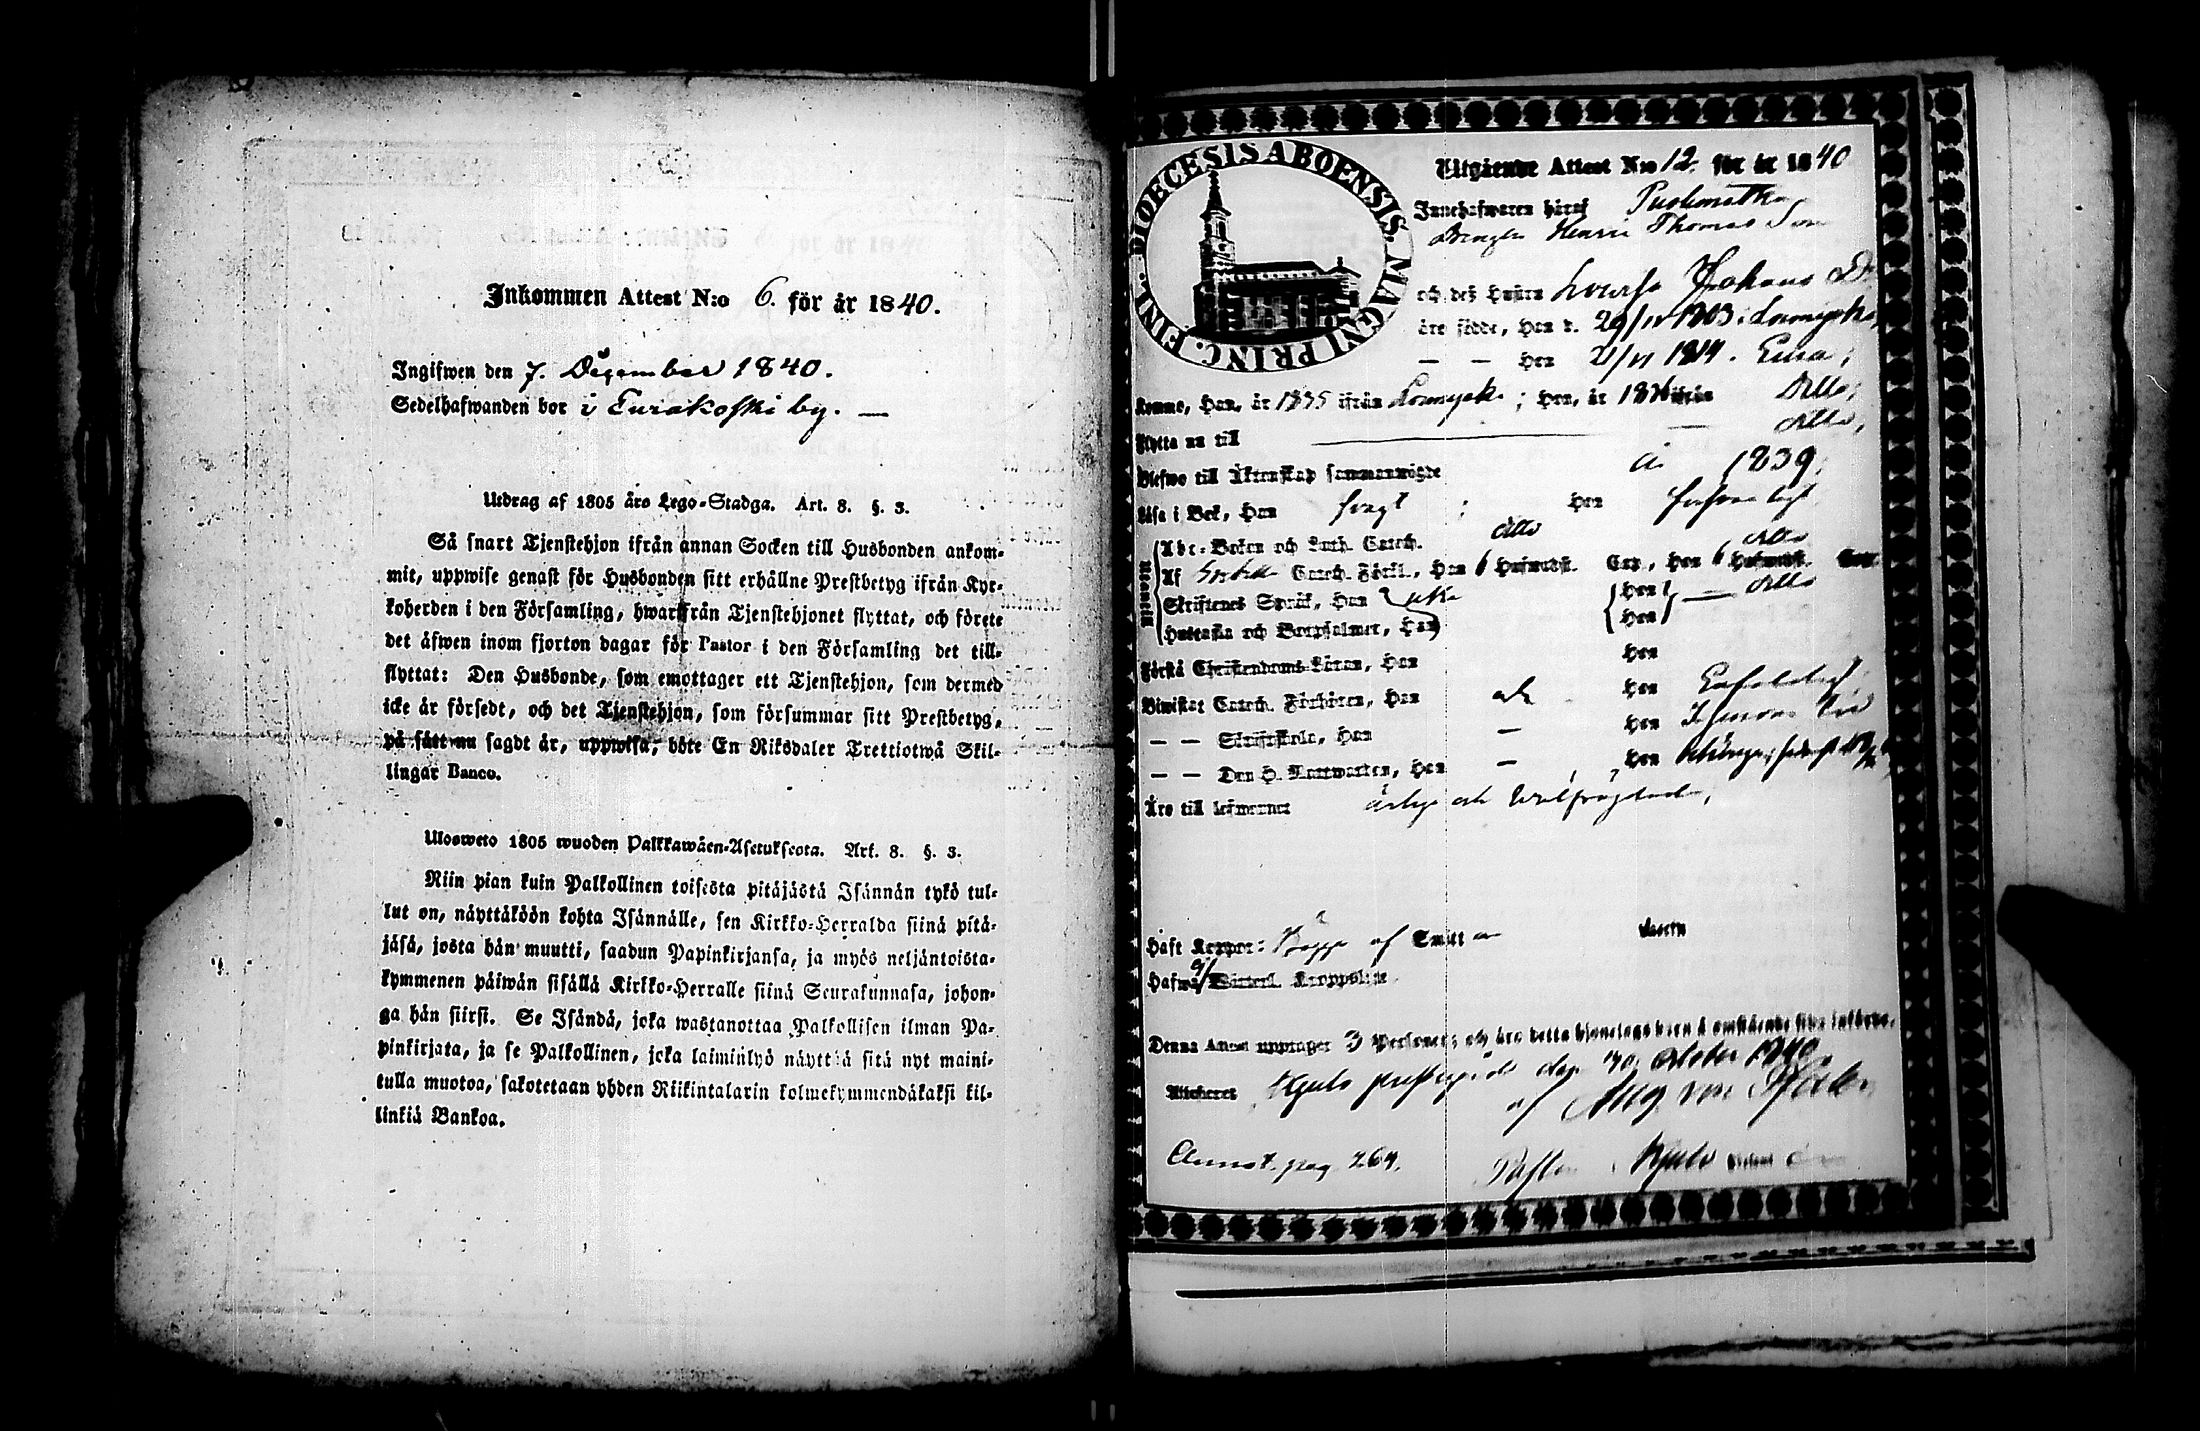 Inkommen Attest N:o 6. för år 1840.
Ingifwen den 7. December 1840.
Sedelhafwanden bor i Eurakoski by. —
Utdrag af 1805 års Lego-Stadga. Art. 8. §. 3.
Så snart Tjenstehjon ifrån annan Socken till Husbonden ankom-
mit, uppwise genast för Husbonden sitt erhållne Prestbetyg ifrån Kyr-
koherden i den Församling, hwarifrån Tjenstehjonet flyttat, och förete
det äfwen inom fjorton dagar för Pastor i den Församling det till-
flyttat: Den Husbonde, som emottager ett Tjenstehjon, som dermed
icke är försedt, och det Tjenstehjon, som försummar sitt Prestbetyg,
på sätt nu sagdt är, uppwisa, böte En Riksdaler Trettiotwå Skil-
lingar Banco.
Ulosweto 1805 wuoden Palkkawäen-Asetuksesta. Art. 8. §. 3.
Niin pian kuin Palkollinen toisesta pitäjästä Isännän tykö tul-
lut on, näyttäköön kohta Isännälle, sen Kirkko-Herralda siinä pitä-
jäsä, josta hän muutti, saadun Papinkirjansa, ja myös neljäntoista-
kymmenen päiwän sisällä Kirkko-Herralle siinä Seurakunnasa, johon-
ga hän siirsi. Se Isändä, joka wastanottaa Palkollisen ilman Pa-
pinkirjata, ja se Palkollinen, joka laiminlyö näyttää sitä nyt maini-
tulla muotoa, sakotetaan yhden Riikintalarin kolmekymmendäkaksi kil-
linkiä Bankoa.
DIOECESIS ABOENSIS. MAGNI PRINC. FINL.
Utgående Attest N:o 12. för år 1840
Innehafwaren häraf
Drengen Henric Thomas Son
och deß Hustru Lovisa Johans D:r
äre födde, Han d. 29/11 1803 i
— — Hon 21/11 1814. Eura;
Komne, Han, år 1835 ifrån ; Hon, år 1836 ifrån Ditto;
Flytta nu till — Ditto,
Blefwo till Äktenskap sammanwigde År 1839.
Läsa i Bok, Han svagt ; Hon
Abc-Boken och Luth. Catech. ditto ditto
Af Catech. Förkl., Han 6 Hufwudst. Cap., Hon 6 Hufwudst. Cap.
Skriftenes Språk, Han Hon — ditto
Hustafla och Botpsalmer, Han Hon
Förstå Christendoms Läran, Han Hon
Biwistat Catech. Förhören, Han och Hon
— — Skriftskola, Han — Hon
— — Den H. Nattwarden, Han — Hon
Äro till lefwernet ärlige och Wälfrägdade,
Haft Koppor: Bägge af Smitt
Hafwa Kroppslyte
Denna Attest upptager 3 Personer; och äro detta hjonelags barn å omstående sida införde.
Attesteret Kjulo prestgård den 10 October 1840.
af Aug. von Pfaler
Annot. pag. 264. Kjulo